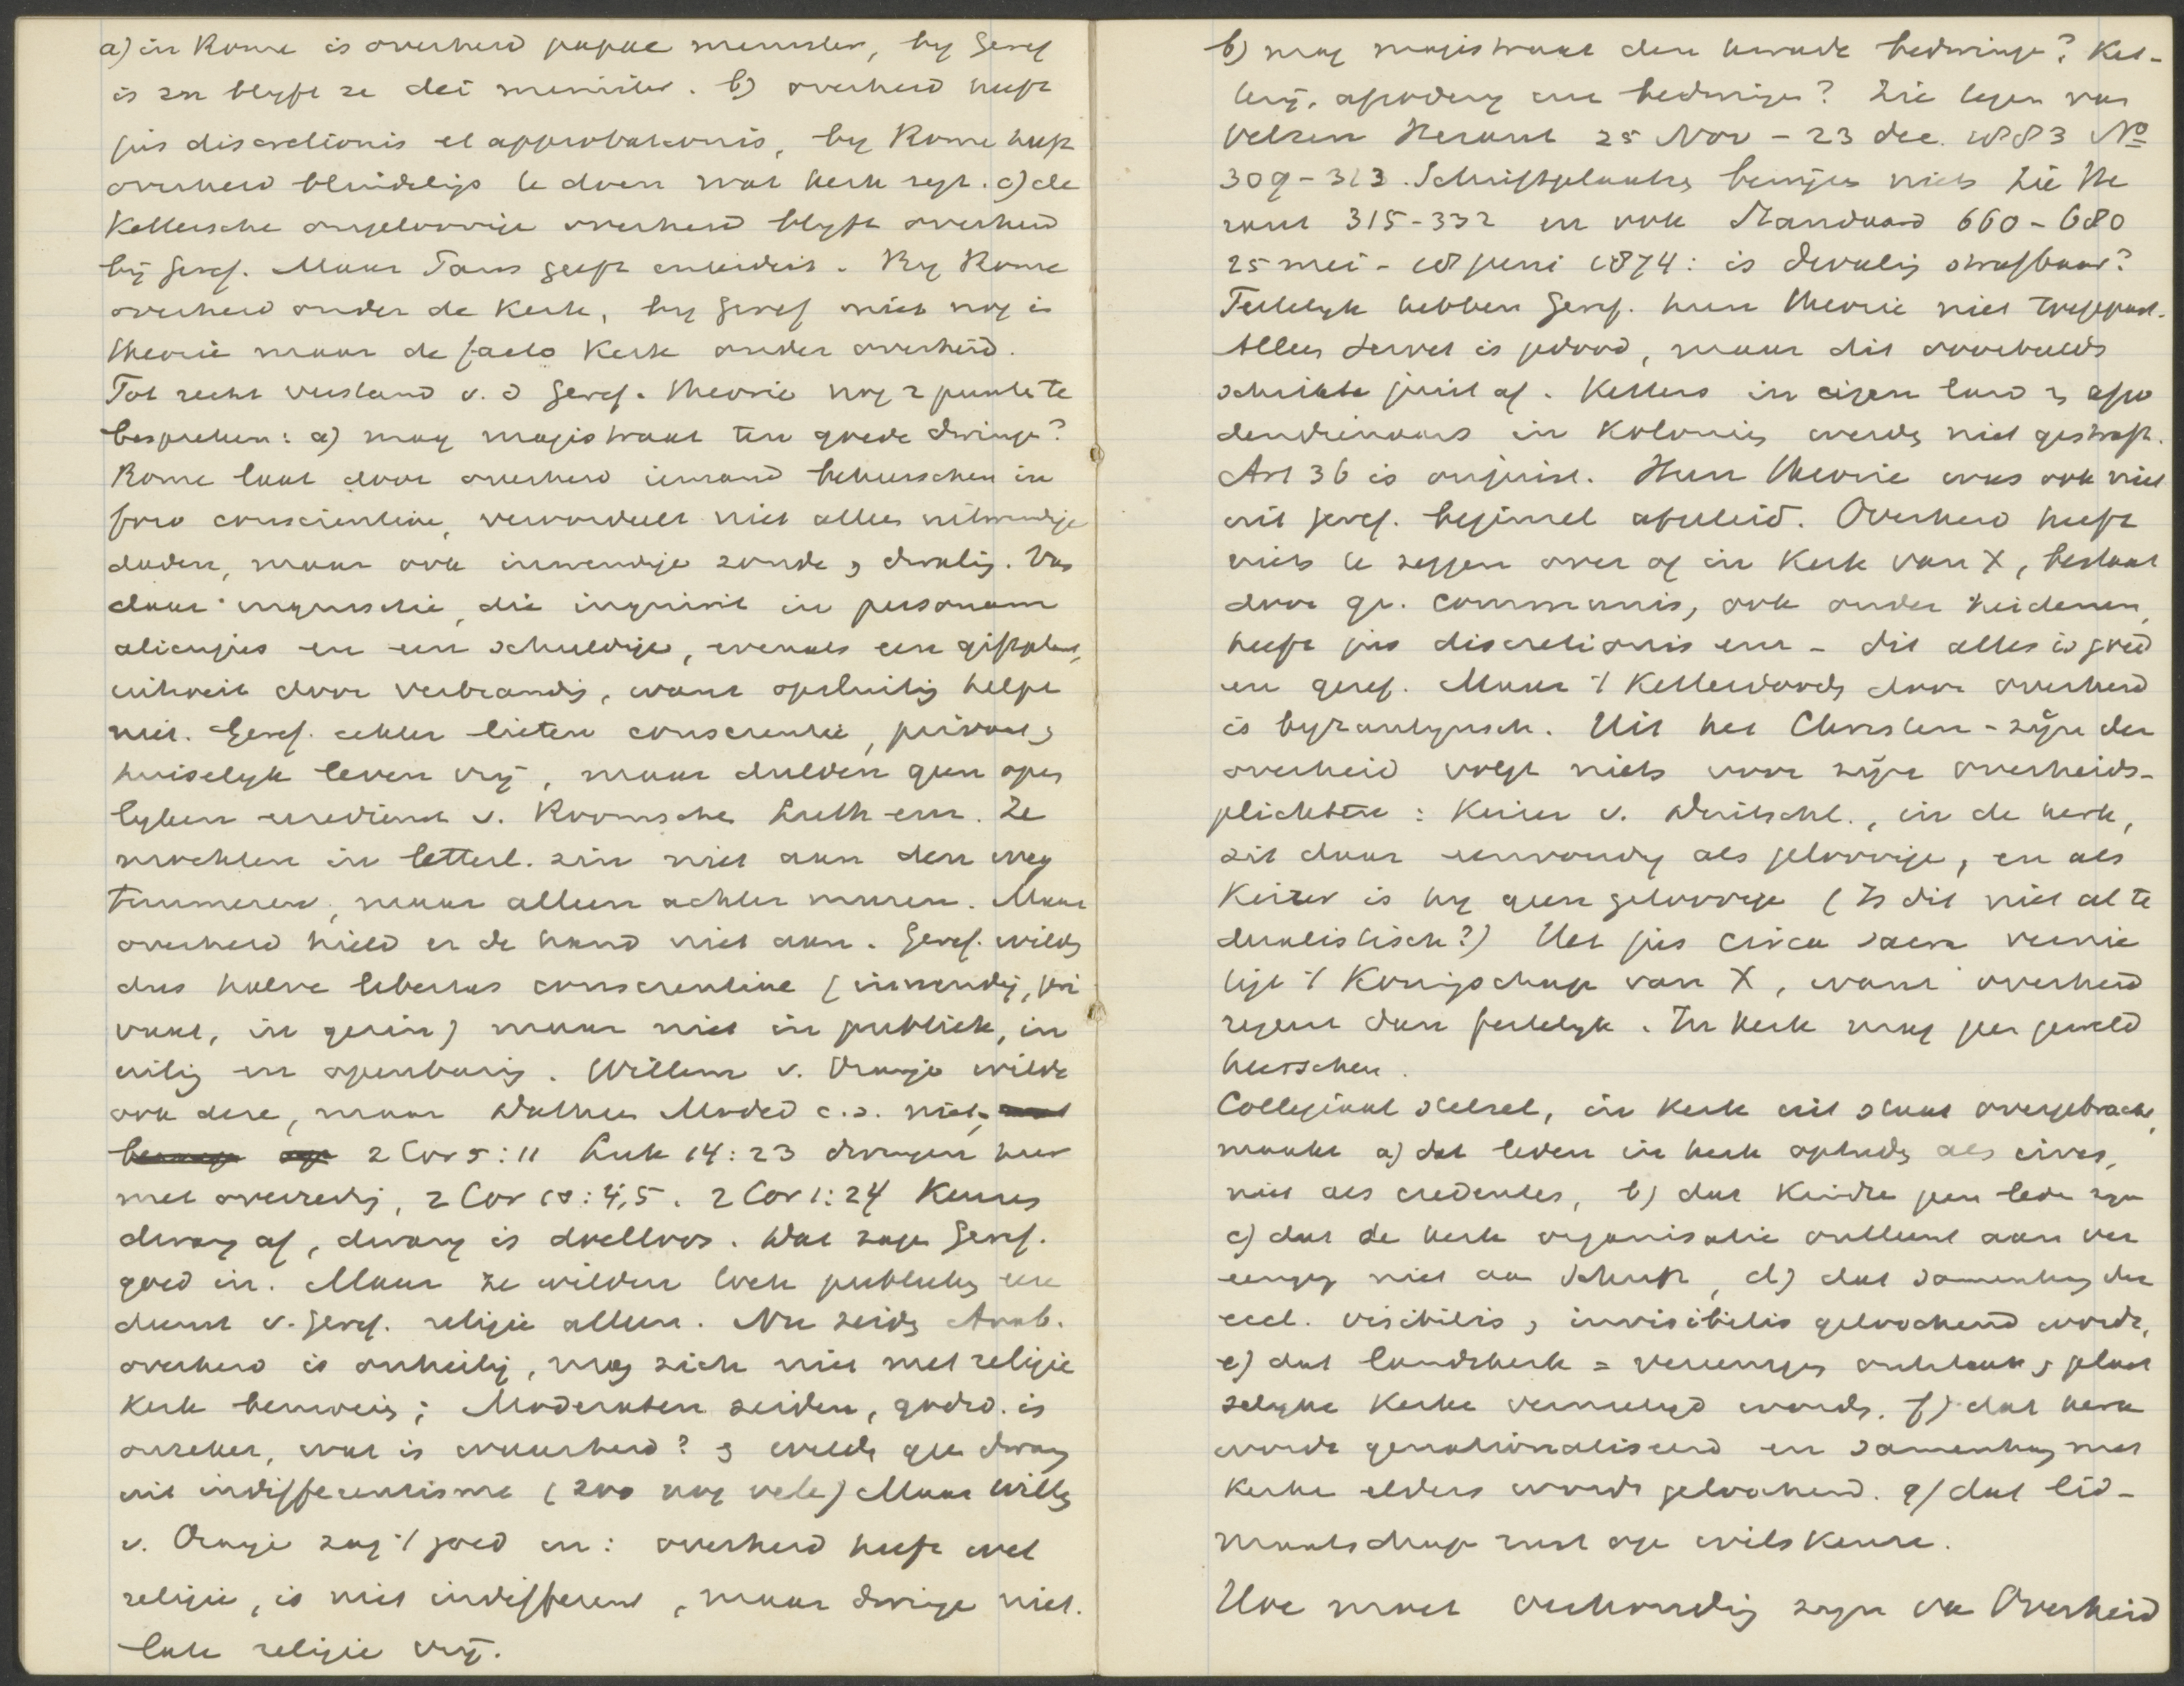 a) in Rome is overheid papae minister, by Geref
is en blyft ze dei minister. b) overheid heeft
jus discretionis et approbationis, by Rome heeft
overheid blindelings te doen wat kerk zegt. c) de
Kettersche ongeloovige overheid blyft overheid
bij Geref. Maar Paus geeft . By Rome
overheid onder de Kerk, by Geref niet nog in
theorie maar de facto Kerk onder overheid.
Tot recht verstand v. d Geref. theorie nog 2 punten te
bespreken: a) mag magistraat ten goede dwingen?
Rome laat door overheid iemand beheerschen in
foro conscientiae, veroordeelt niet alleen uitwendige
daden, maar ook inwendige zonde, dwaling. Van
daar inquisitie, die inquirit in personam
alicujus en een schuldige, evenals een gifplant,
uitroeit door verbranding, want opsluiting helpt
niet. Geref. echter lieten conscientie, privaat,
huiselyk leven vrij, maar dulden geen open
lyken eeredienst v. Roomsche Luth enz. Ze
mochten in letterl. zin niet aan den weg
timmeren, maar alleen achter muren. Maar
overheid hield er de hand niet aan. Geref. wilden
dus halve libertas conscientiae (inwendig, pri
vaat, in gezin) maar niet in publiek, in
uiting en openbaring. Willem v. Oranje wilde
ook deze, maar Dathen Moded c.s. niet,
2 Cor 5:11 Luk 14:23 dwingen hier
met overreding, 2 Cor 10:4,5. 2 Cor 1:24 Keurt
dwang af, dwang is doelloos. Dat zagen Geref.
goed in. Maar ze wilden toch publieken eere
dienst v. Geref. religie alleen. Nu zeiden Anab.
overheid is onheilig, mag zich niet met religie
Kerk bemoeien; Moderaten zeiden, godsd. is
onzeker, wat is waarheid? en wilden geen dwang
uit indifferentisme (zoo nog vele) Maar Willem
v. Oranje zag 't goed in: overheid heeft wel
religie, is niet indifferent, maar dwinge niet.
late religie vrij.
b) mag magistraat den kwade bedwingen? Ket-
terij, afgodery enz bedwingen? Zie tegen van
Velzen Heraut 25 Nov - 23 dec. 1883 No
309-313. Schriftplaatsen bewijzen niets Zie He
raut 315-332 en ook Standaard 660-680
25 mei - 18 juni 1874: is dwaling strafbaar?
Feitelyk hebben Geref. hun theorie niet toegepast.
Alleen Servet is gedood, maar dit voorbeeld
schrikte juist af. Ketters in eigen land en afgo
dendienaars in Koloniën werden niet gestraft.
Art 36 is onjuist. Hun theorie was ook niet
uit geref. beginsel afgeleid. Overheid heeft
niets te zeggen over of in Kerk van X, bestaat
door gr. communis, ook onder heidenen,
heeft jus discretionis enz - dit alles is goed
en geref. Maar 't Ketterdooden door overheid
is byzantynsch. Uit het Christen-zijn der
overheid volgt niets voor zijn overheids-
plichten: Keizer v. Duitschl., in de kerk,
zit daar eenvoudig als geloovige, en als
Keizer is hy geen geloovige (Is dit niet al te
dualistisch?) Het jus circa sacra vernie
tigt 't Koningschap van X, want overheid
regeert dan feitelyk. In kerk mag geen geweld
heerschen.
Collegiaal stelsel, in Kerk uit staat overgebracht,
maakt a) dat leden in kerk optreden als cives,
niet als credentes, b) dat Kindren geen leden zyn
c) dat de kerk organisatie ontleent aan ver
eeniging niet aan Schrift, d) dat samenhang der
eccl. visibilis, invisibilis geloochend wordt,
e) dat landskerk = vereeniging ontstaat, plaat
selyke Kerken vernietigd worden. f) dat kerk
wordt genationaliseerd en samenhang met
Kerken elders wordt geloochend. g) dat lid-
maatschap rust op wilskeuze.
Hoe moet verhouding zyn van Overheid